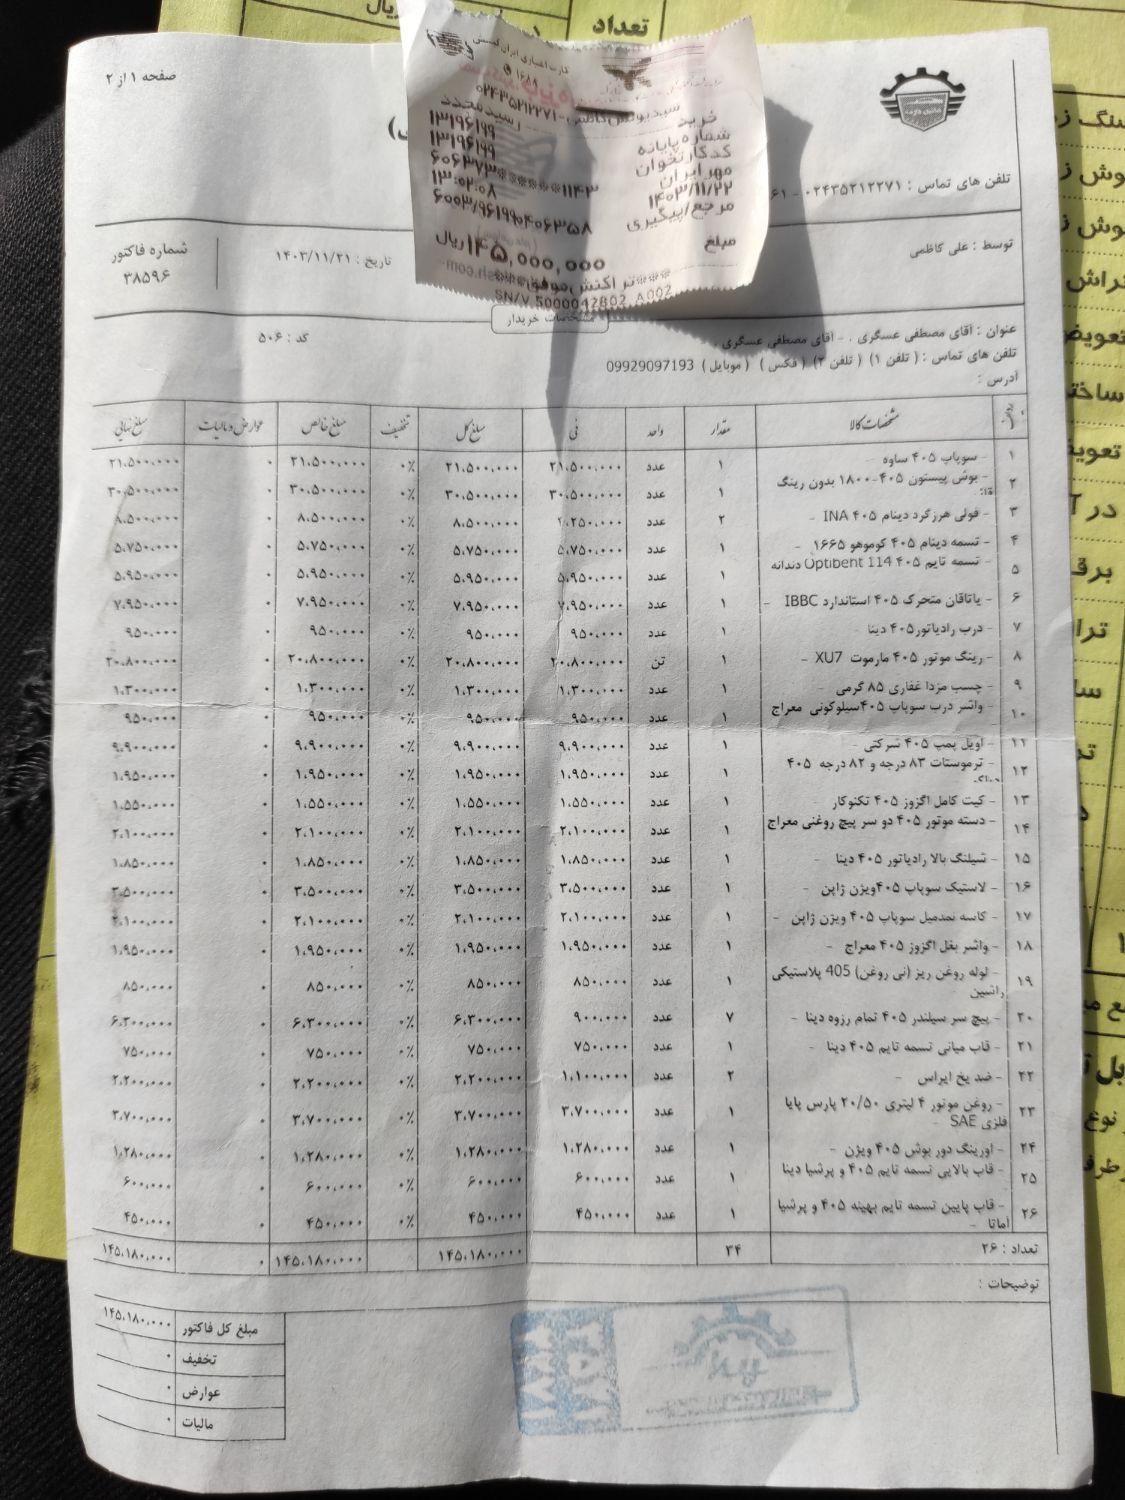 تعداد
ریال
صفحه ۱ از ۲
کارت اعتباری ایران کیش
۱۶۸۸
سیدیونس کاظمی - ۰۲۴۳۵۲۱۲۲۷۱
خرید رسید مجدد
شماره پایانه ۱۳۱۹۶۱۹۹
کدکارتخوان ۱۳۱۹۶۱۹۹
مهر ایران ۶۰۶۳۷۳******۱۱۴۳
۱۴۰۳/۱۱/۲۲ ۱۳:۰۲:۰۸
مرجع/پیگیری ۶۰۰۳/۹۶۱۹۹۰۴۰۶۳۵۸
مبلغ ۱۴۵,۰۰۰,۰۰۰ ریال
***تراکنش موفق***
SN/V.5000042802 A002
تلفن های تماس : ۰۲۴۳۵۲۱۲۲۷۱ - ۶۱
توسط : علی کاظمی
تاریخ : ۱۴۰۳/۱۱/۲۱
شماره فاکتور
۳۸۵۹۶
مشخصات خریدار
عنوان : آقای مصطفی عسگری . - آقای مصطفی عسگری . کد : ۵۰۶
تلفن های تماس : ( تلفن ۱) ( تلفن ۲) ( فکس ) ( موبایل ) 09929097193
آدرس :
مشخصات کالا مقدار واحد فی مبلغ کل تخفیف مبلغ خالص عوارض و مالیات مبلغ نهایی
۱ - سوپاپ ۴۰۵ ساوه - ۱ عدد ۲۱،۵۰۰،۰۰۰ ۲۱،۵۰۰،۰۰۰ ۰٪ ۲۱،۵۰۰،۰۰۰ ۰ ۲۱،۵۰۰،۰۰۰
۲ - بوش پیستون ۴۰۵-۱۸۰۰ بدون رینگ ۱ عدد ۳۰،۵۰۰،۰۰۰ ۳۰،۵۰۰،۰۰۰ ۰٪ ۳۰،۵۰۰،۰۰۰ ۰ ۳۰،۵۰۰،۰۰۰
۳ - فولی هرزگرد دینام ۴۰۵ INA - ۲ عدد ۴،۲۵۰،۰۰۰ ۸،۵۰۰،۰۰۰ ۰٪ ۸،۵۰۰،۰۰۰ ۰ ۸،۵۰۰،۰۰۰
۴ - تسمه دینام ۴۰۵ کوموهو ۱۶۶۵ - ۱ عدد ۵،۷۵۰،۰۰۰ ۵،۷۵۰،۰۰۰ ۰٪ ۵،۷۵۰،۰۰۰ ۰ ۵،۷۵۰،۰۰۰
۵ - تسمه تایم ۴۰۵ Optibent 114 دندانه ۱ عدد ۵،۹۵۰،۰۰۰ ۵،۹۵۰،۰۰۰ ۰٪ ۵،۹۵۰،۰۰۰ ۰ ۵،۹۵۰،۰۰۰
۶ - یاتاقان متحرک ۴۰۵ استاندارد IBBC - ۱ عدد ۷،۹۵۰،۰۰۰ ۷،۹۵۰،۰۰۰ ۰٪ ۷،۹۵۰،۰۰۰ ۰ ۷،۹۵۰،۰۰۰
۷ - درب رادیاتور۴۰۵ دینا - ۱ عدد ۹۵۰،۰۰۰ ۹۵۰،۰۰۰ ۰٪ ۹۵۰،۰۰۰ ۰ ۹۵۰،۰۰۰
۸ - رینگ موتور ۴۰۵ مارموت XU7 - ۱ تن ۲۰،۸۰۰،۰۰۰ ۲۰،۸۰۰،۰۰۰ ۰٪ ۲۰،۸۰۰،۰۰۰ ۰ ۲۰،۸۰۰،۰۰۰
۹ - چسب مزدا غفاری ۸۵ گرمی - ۱ عدد ۱،۳۰۰،۰۰۰ ۱،۳۰۰،۰۰۰ ۰٪ ۱،۳۰۰،۰۰۰ ۰ ۱،۳۰۰،۰۰۰
۱۰ - واشر درب سوپاپ ۴۰۵سیلوکونی معراج ۱ عدد ۹۵۰،۰۰۰ ۹۵۰،۰۰۰ ۰٪ ۹۵۰،۰۰۰ ۰ ۹۵۰،۰۰۰
۱۱ - اویل پمپ ۴۰۵ شرکتی - ۱ عدد ۹،۹۰۰،۰۰۰ ۹،۹۰۰،۰۰۰ ۰٪ ۹،۹۰۰،۰۰۰ ۰ ۹،۹۰۰،۰۰۰
۱۲ - ترموستات ۸۳ درجه و ۸۲ درجه ۴۰۵ ۱ عدد ۱،۹۵۰،۰۰۰ ۱،۹۵۰،۰۰۰ ۰٪ ۱،۹۵۰،۰۰۰ ۰ ۱،۹۵۰،۰۰۰
۱۳ - کیت کامل اگزوز ۴۰۵ تکنوکار ۱ عدد ۱،۵۵۰،۰۰۰ ۱،۵۵۰،۰۰۰ ۰٪ ۱،۵۵۰،۰۰۰ ۰ ۱،۵۵۰،۰۰۰
۱۴ - دسته موتور ۴۰۵ دو سر پیچ روغنی معراج ۱ عدد ۲،۱۰۰،۰۰۰ ۲،۱۰۰،۰۰۰ ۰٪ ۲،۱۰۰،۰۰۰ ۰ ۲،۱۰۰،۰۰۰
۱۵ - شیلنگ بالا رادیاتور ۴۰۵ دینا - ۱ عدد ۱،۸۵۰،۰۰۰ ۱،۸۵۰،۰۰۰ ۰٪ ۱،۸۵۰،۰۰۰ ۰ ۱،۸۵۰،۰۰۰
۱۶ - لاستیک سوپاپ ۴۰۵ویژن ژاپن - ۱ عدد ۳،۵۰۰،۰۰۰ ۳،۵۰۰،۰۰۰ ۰٪ ۳،۵۰۰،۰۰۰ ۰ ۳،۵۰۰،۰۰۰
۱۷ - کاسه نمدمیل سوپاپ ۴۰۵ ویژن ژاپن - ۱ عدد ۲،۱۰۰،۰۰۰ ۲،۱۰۰،۰۰۰ ۰٪ ۲،۱۰۰،۰۰۰ ۰ ۲،۱۰۰،۰۰۰
۱۸ - واشر بغل اگزوز ۴۰۵ معراج - ۱ عدد ۱،۹۵۰،۰۰۰ ۱،۹۵۰،۰۰۰ ۰٪ ۱،۹۵۰،۰۰۰ ۰ ۱،۹۵۰،۰۰۰
۱۹ - لوله روغن ریز (نی روغن) 405 پلاستیکی ۱ عدد ۸۵۰،۰۰۰ ۸۵۰،۰۰۰ ۰٪ ۸۵۰،۰۰۰ ۰ ۸۵۰،۰۰۰
راتسین
۲۰ - پیچ سر سیلندر ۴۰۵ تمام رزوه دینا - ۷ عدد ۹۰۰،۰۰۰ ۶،۳۰۰،۰۰۰ ۰٪ ۶،۳۰۰،۰۰۰ ۰ ۶،۳۰۰،۰۰۰
۲۱ - قاب میانی تسمه تایم ۴۰۵ دینا - ۱ عدد ۷۵۰،۰۰۰ ۷۵۰،۰۰۰ ۰٪ ۷۵۰،۰۰۰ ۰ ۷۵۰،۰۰۰
۲۲ - ضد یخ ایراس - ۲ عدد ۱،۱۰۰،۰۰۰ ۲،۲۰۰،۰۰۰ ۰٪ ۲،۲۰۰،۰۰۰ ۰ ۲،۲۰۰،۰۰۰
۲۳ - روغن موتور ۴ لیتری ۲۰/۵۰ پارس پایا ۱ عدد ۳،۷۰۰،۰۰۰ ۳،۷۰۰،۰۰۰ ۰٪ ۳،۷۰۰،۰۰۰ ۰ ۳،۷۰۰،۰۰۰
فلزی SAE -
۲۴ - اورینگ دور بوش ۴۰۵ ویژن - ۱ عدد ۱،۲۸۰،۰۰۰ ۱،۲۸۰،۰۰۰ ۰٪ ۱،۲۸۰،۰۰۰ ۰ ۱،۲۸۰،۰۰۰
۲۵ - قاب بالایی تسمه تایم ۴۰۵ و پرشیا دینا ۱ عدد ۶۰۰،۰۰۰ ۶۰۰،۰۰۰ ۰٪ ۶۰۰،۰۰۰ ۰ ۶۰۰،۰۰۰
۲۶ - قاب پایین تسمه تایم بهینه ۴۰۵ و پرشیا ۱ عدد ۴۵۰،۰۰۰ ۴۵۰،۰۰۰ ۰٪ ۴۵۰،۰۰۰ ۰ ۴۵۰،۰۰۰
اماتا -
تعداد : ۲۶ ۳۴ ۱۴۵،۱۸۰،۰۰۰ ۱۴۵،۱۸۰،۰۰۰ ۰ ۱۴۵،۱۸۰،۰۰۰
توضیحات :
مبلغ کل فاکتور ۱۴۵،۱۸۰،۰۰۰
تخفیف ۰
عوارض ۰
مالیات ۰